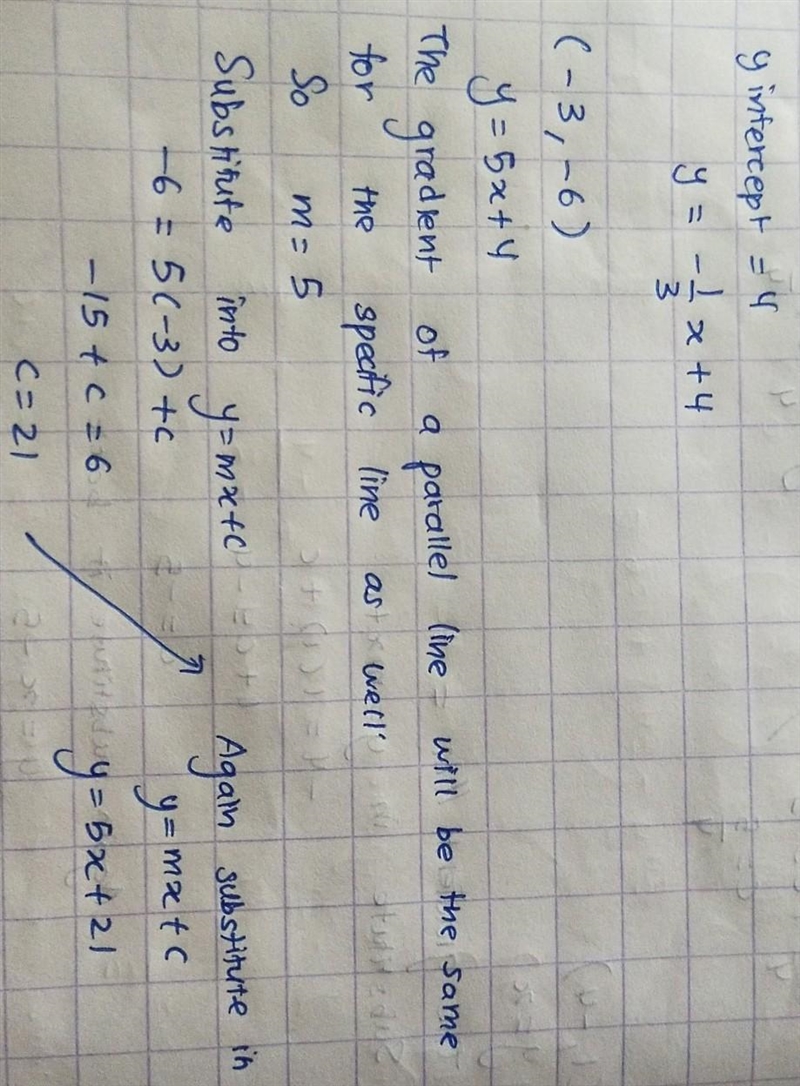 y intercept = 4
y = -1/3 x + 4
(-3, -6)
y = 5x+4
The gradient of a parallel line will be the same
for the specific line as well
So m = 5
Substitute into y=mx+c
-6 = 5(-3) +c
-15 + c = 6
c = 21
Again substitute in
y = mx + c
y = 5x + 21